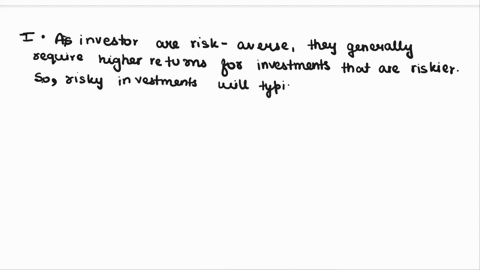 I. As investor are risk-averse, they generally
require higher returns for investments that are riskier.
So, risky investments will typi